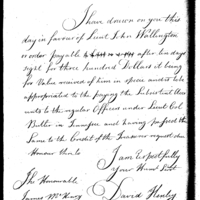 I have drawn on you this
day in favour of Lieut John Wallington
or order payable after ten days
sight for three Hundred Dollars it being
for Value received of him in specie and to be
appropriated to the paying the Subsistence
to the regular Officers under Lieut Col
Butler in Tennessee and having
the Same to the Credit of the Treasurer request
Honour thanks
I am respectfully
your Humb Servt
The Honorable
James McHenry
David Henley